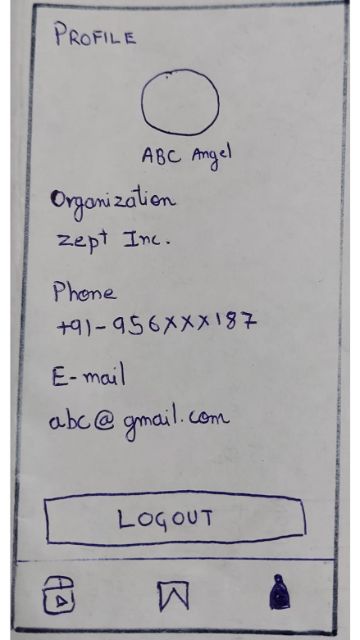 PROFILE
ABC Angel
Organization
zept Inc.
Phone
+91-956XXX187
E-mail
abc@gmail.com
LOGOUT